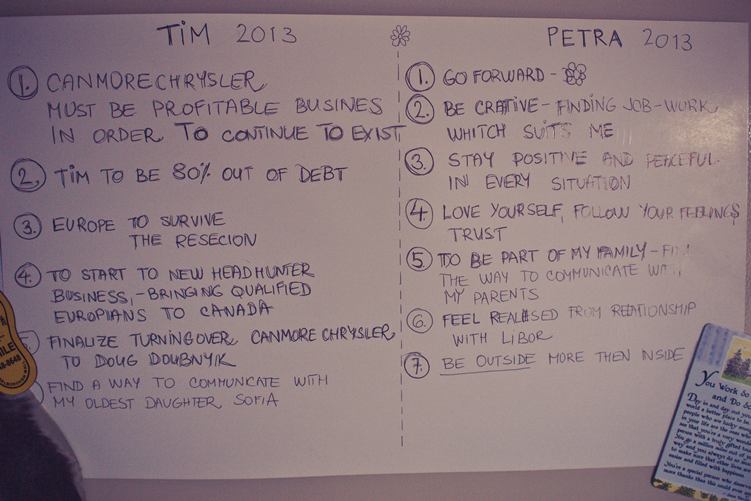 TIM 2013
1. CANMORE CHRYSLER
MUST BE PROFITABLE BUSINES
IN ORDER TO CONTINUE TO EXIST
2. TIM TO BE 80% OUT OF DEBT
3. EUROPE TO SURVIVE
THE RESECION
4. TO START TO NEW HEADHUNTER
BUSINESS,-BRINGING QUALIFIED
EUROPIANS TO CANADA
FINALIZE TURNINGOVER CANMORE CHRYSLER
TO DOUG DOUBNYIK
FIND A WAY TO COMMUNICATE WITH
MY OLDEST DAUGHTER SOFIA
PETRA 2013
1. GO FORWARD -
2. BE CRATIVE - FINDING JOB-WORK
WHITCH SUITS ME
3. STAY POSITIVE AND PEACEFUL
IN EVERY SITUATION
4. LOVE YOURSELF, FOLLOW YOUR FEELINGS
TRUST
5. TO BE PART OF MY FAMILY -
THE WAY TO COMMUNICATE
MY PARENTS
6. FEEL REALEASED FROM RELATIONSHIP
WITH LIBOR
7. BE OUTSIDE MORE THEN INSIDE
You Work So
and Do So